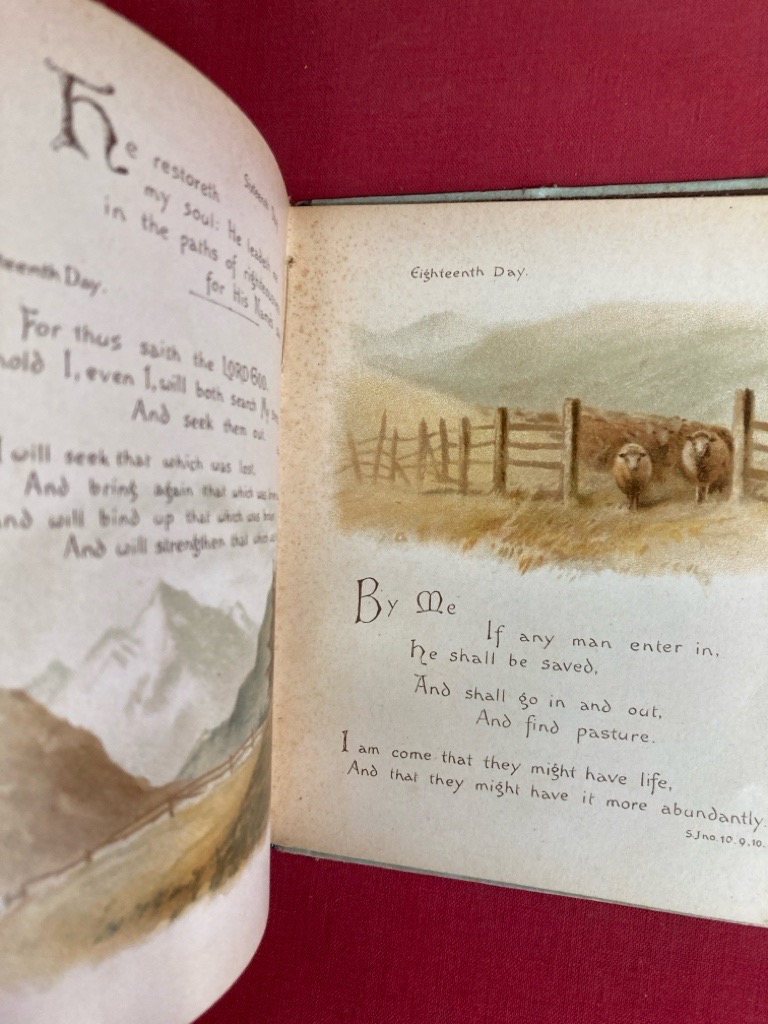 He restoreth
Sixteenth
my soul: He leadeth
in the paths of righteousness
for His Name's
teenth Day.
For thus saith the LORD GOD,
hold I, even I, will both search My
And seek them out.
I will seek that which was lost,
And bring again that which was
and will bind up that which was
And will strengthen that which
Eighteenth Day.
By Me
If any man enter in,
He shall be saved,
And shall go in and out,
And find pasture.
I am come that they might have life,
And that they might have it more abundantly.
S.Jno.10.9.10.